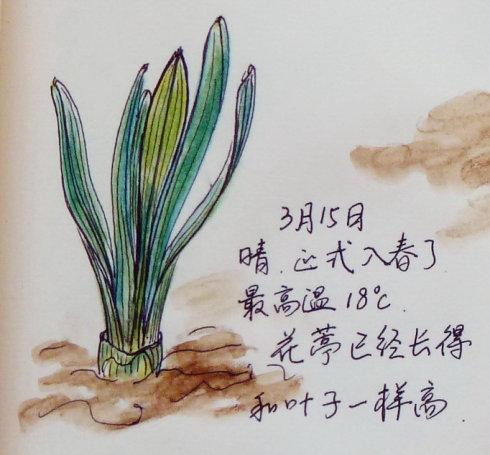 3月15日
晴.正式入春了
最高温18℃.
花葶已经长得
和叶子一样高.